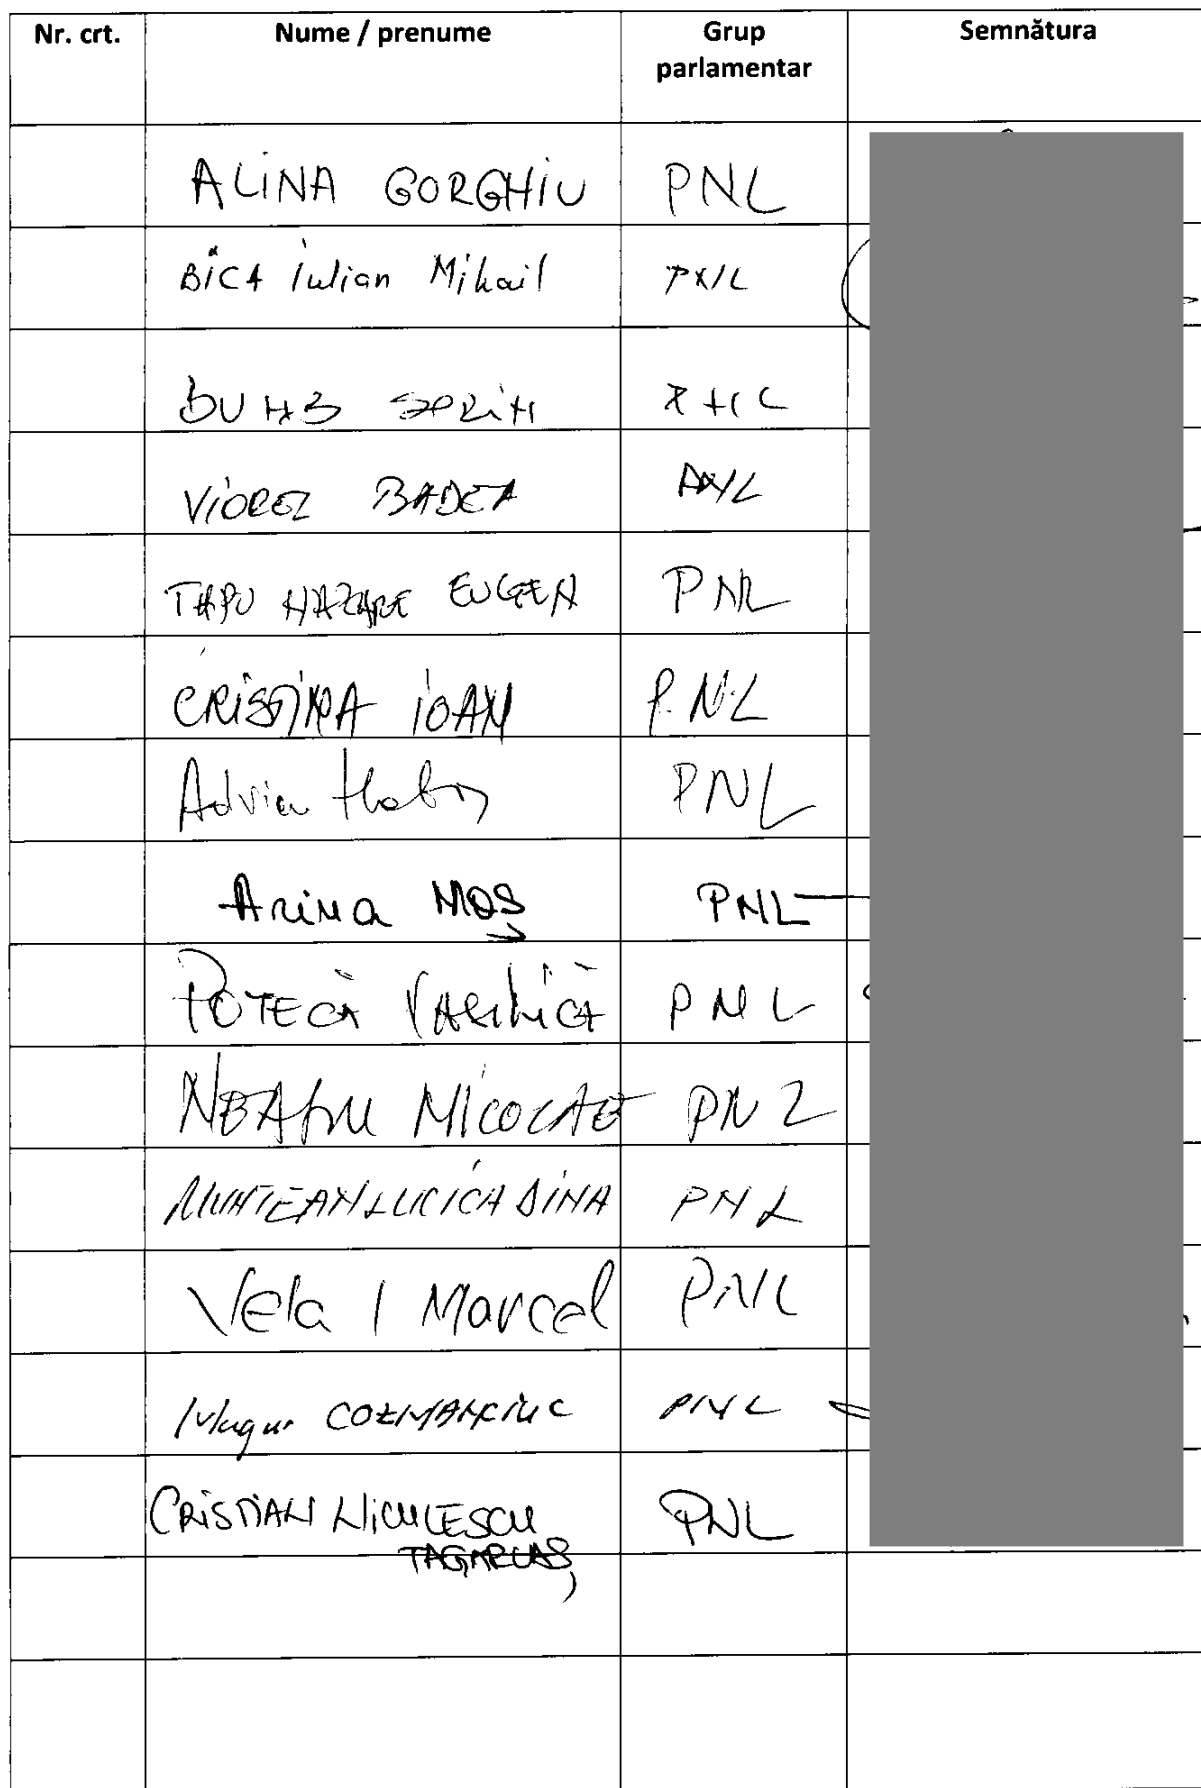 Nr. crt. Nume / prenume Grup parlamentar Semnătura
ALINA GORGHIU PNL
BICA Iulian Mihail PNL
SORIN PNL
VIOREL BADEA PNL
TAPU NAZARE EUGEN PNL
CRISTINA IOAN P.N.L
Adrian PNL
Arina MOȘ PNL
POTECĂ VASILICĂ PNL
NEAGU NICOLAE PNL
MUNTEAN LUCICA DINA PNL
Vela / Marcel PNL
Mugur COZMANCIUC PNL
CRISTIAN NICULESCU PNL
ȚAGARLAȘ